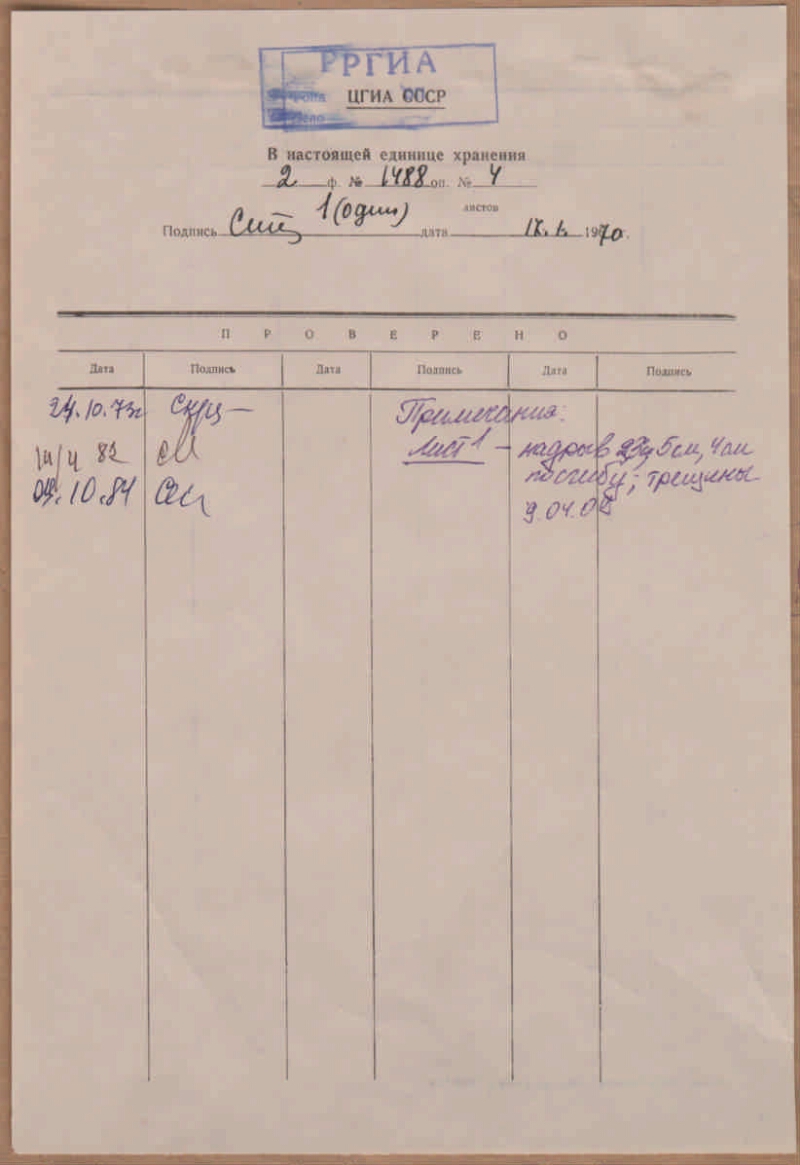 РГИА
ЦГИА СССР
В настоящей единице хранения
2 ф. № 1488 оп. № 4
1 (один) листов
Подпись дата 1970.
ПРОВЕРЕНО
Дата Подпись Дата Подпись Дата Подпись
24.10.73г Примечания:
14/4 82 Лист 1 – надрыв 5 см, 4 см
04.10.84 по сгибу; трещины
9.04.08